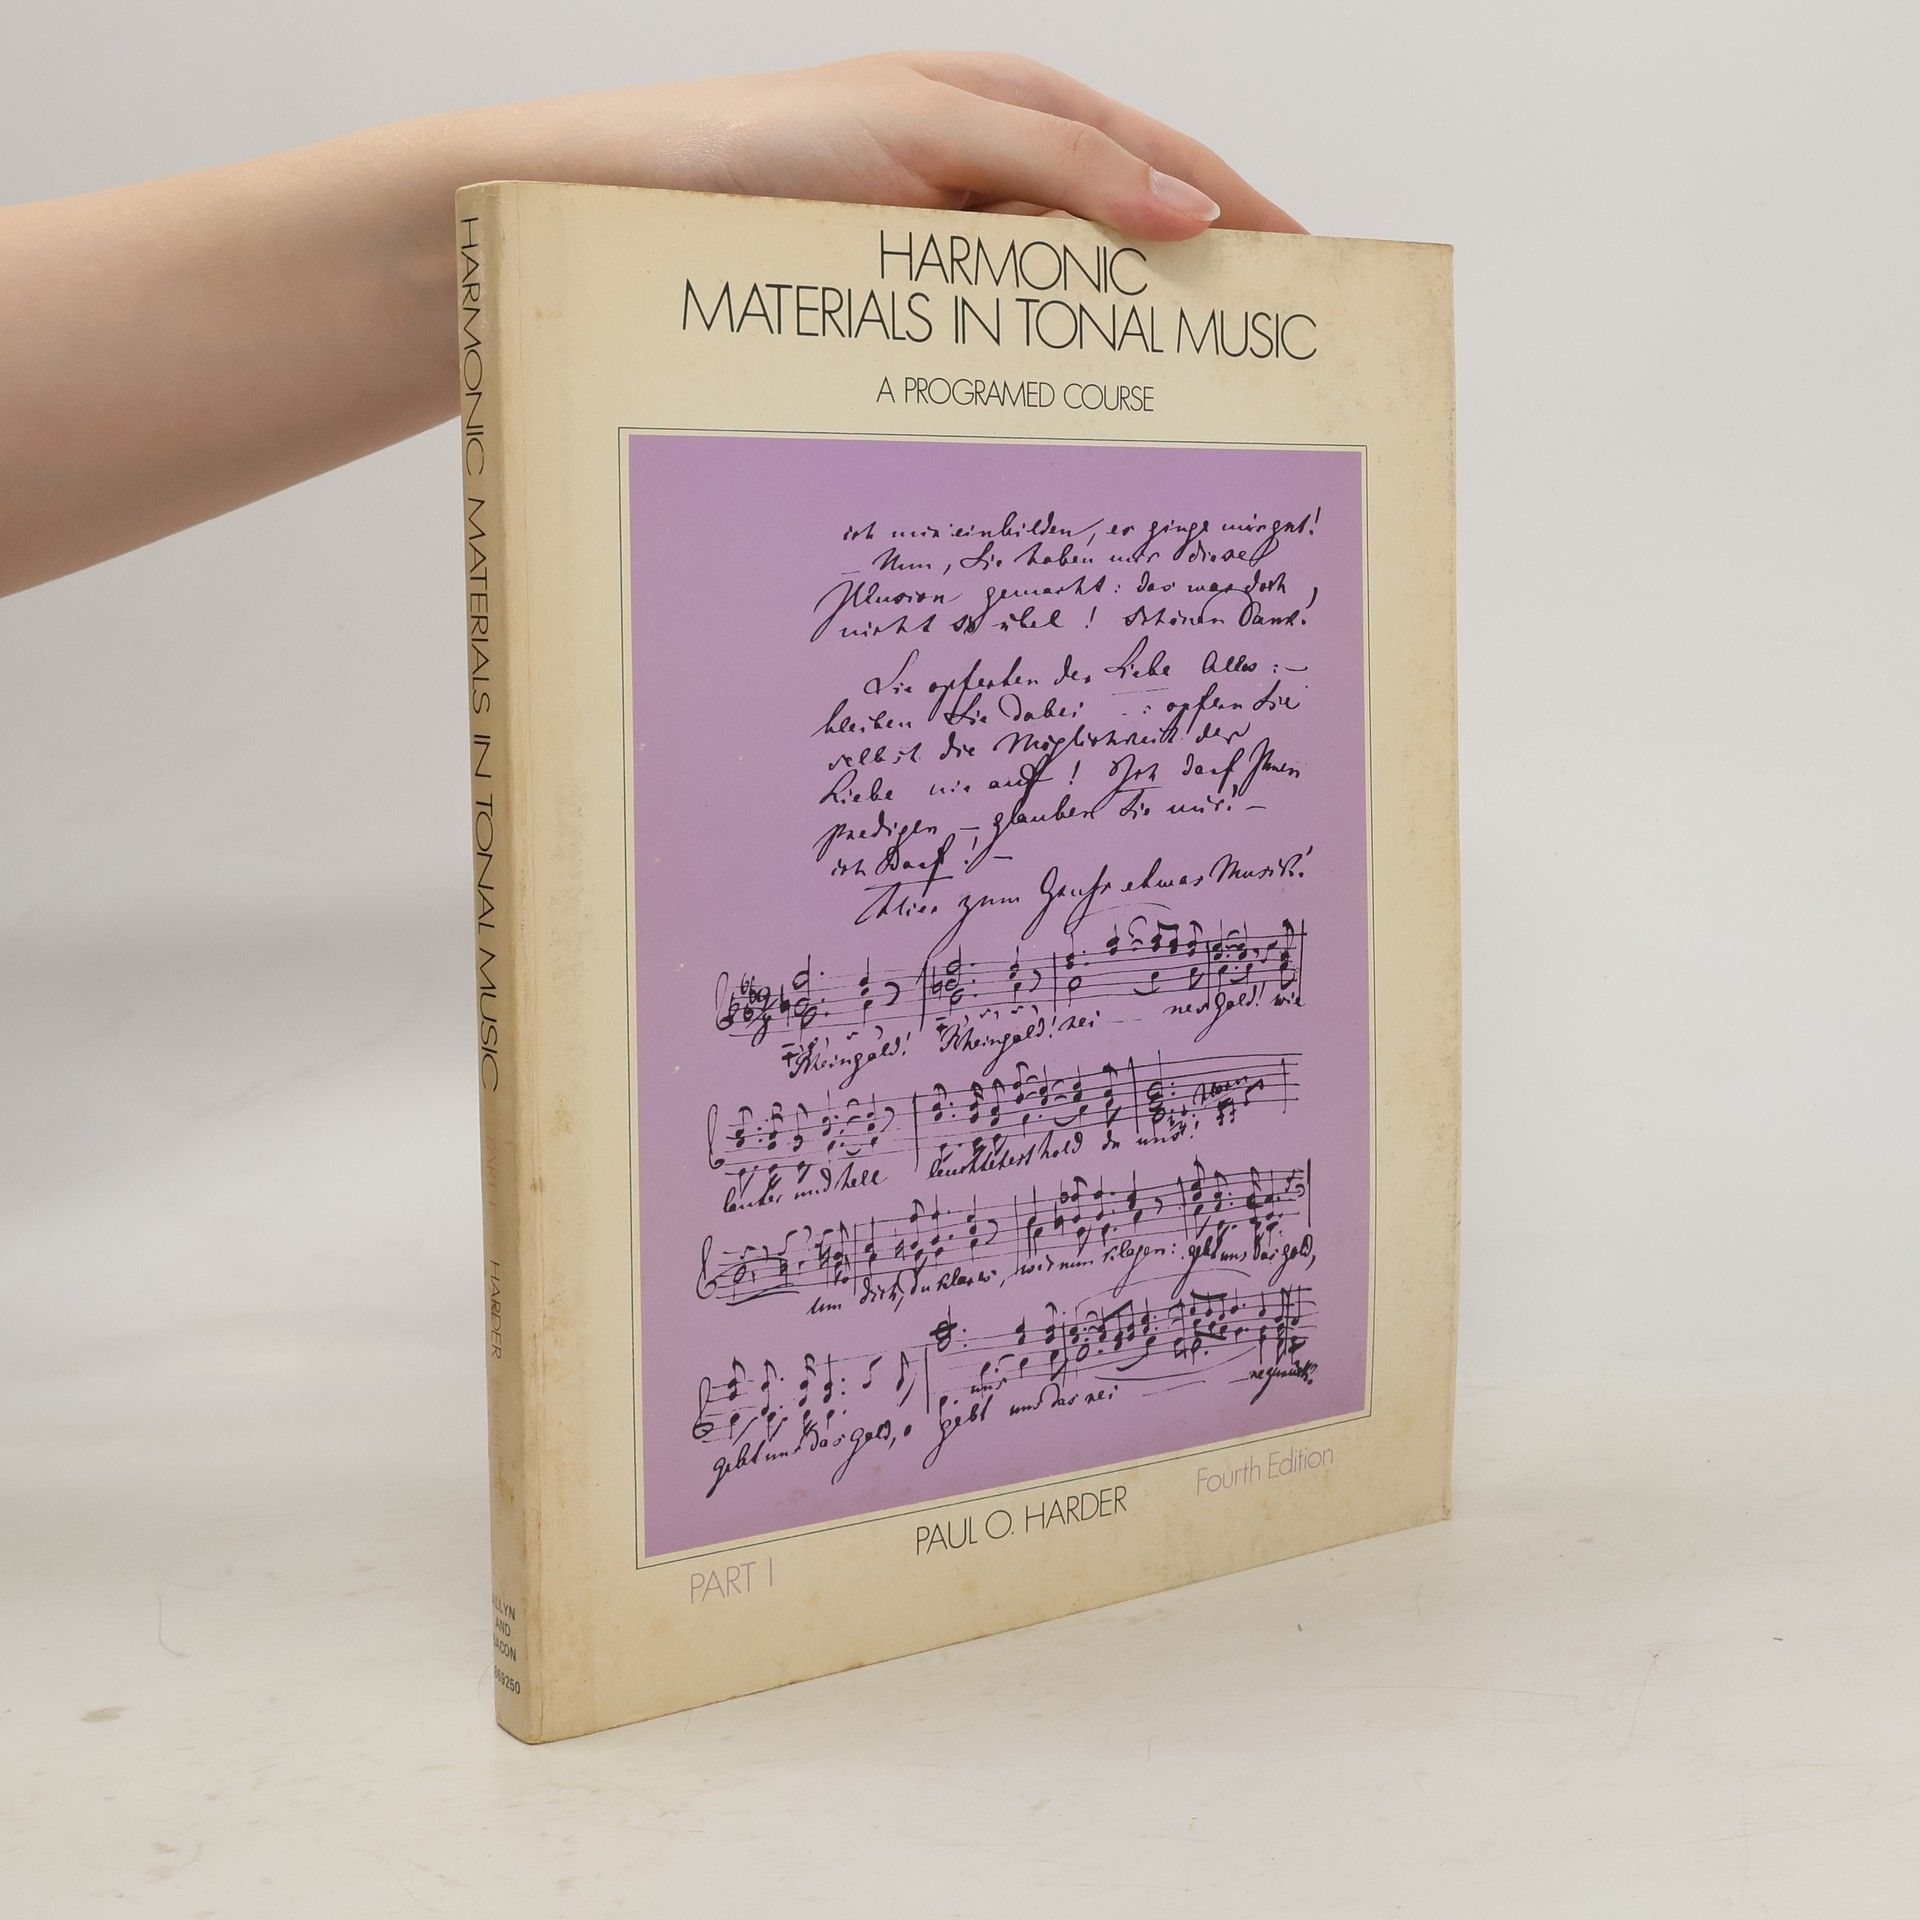 HARMONIC
MATERIALS IN TONAL MUSIC
A PROGRAMED COURSE
ich mir einbilden, es ginge
Nun, Sie haben mir diese
Illusion gemacht: das war doch
nicht so übel! Schönen Dank!
Sie opferten der Liebe Alles:—
bleiben Sie dabei : opfern Sie
selbst die Möglichkeit der
Liebe nie auf! Ich darf Ihnen
predigen — glauben Sie mir! —
ich darf! —
Hier zum Gruss etwas Musik!
Rheingold! Rheingold! rei — nes Gold! wie
lauter und hell leuchtetest hold du uns!
um dich, du klares, wir nun klagen: gebt uns das Gold,
uns
gebt uns das Gold, o gebt uns das rei
PART I
PAUL O. HARDER
Fourth Edition
HARMONIC MATERIALS IN TONAL MUSIC PART I HARDER
ALLYN
AND
BACON